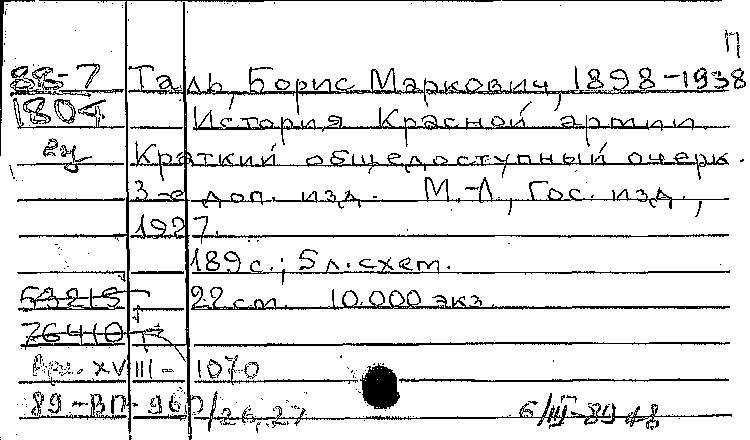 П
88-7 Таль, Борис Маркович, 1898-1938
1804 История Красной армии.
Краткий общедоступный очерк.
3-е доп. изд. М.-Л., Гос. изд.,
1927.
189 с.; 5 л. схем.
53215 22 см. 10.000 экз.
76410
Арх. XVIII - 1070
89-ВП-960/26,27